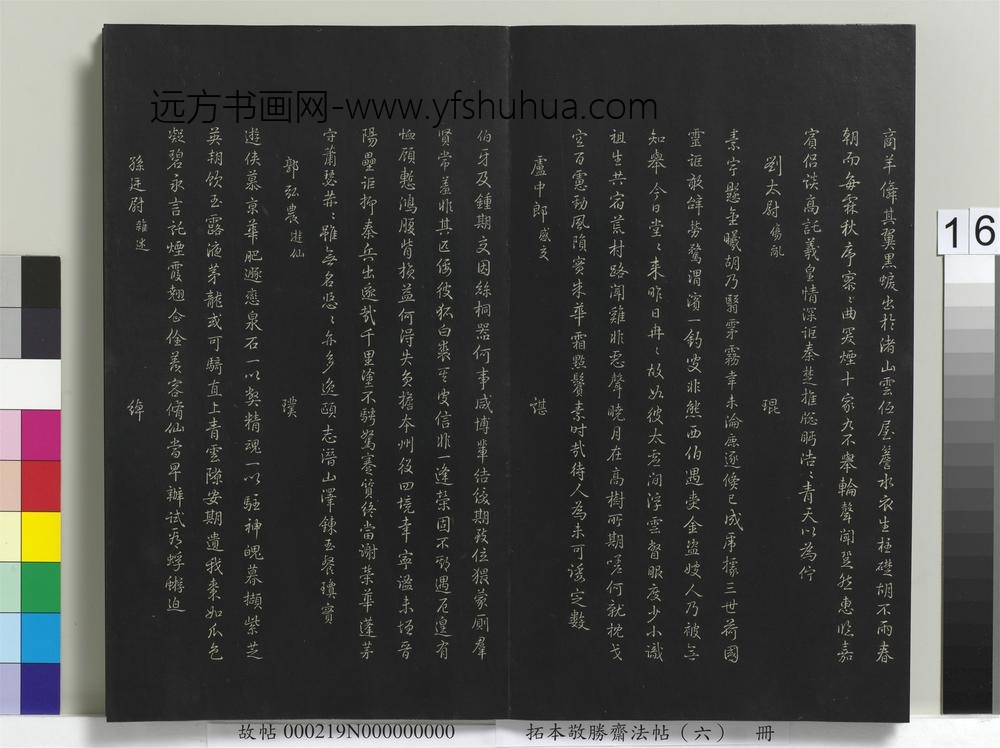 远方书画网-www.yfshuhua.com
商羊俸其翼黑蜧出於渚山雲伍屋簷水衣生柱礎胡不雨春
朝而每霖秋序寥〻曲突煙十家九不舉輪聲闃登然惠順嘉
賓侶談高託羲皇情深詎秦楚推牕眄浩〻青天以為佇
劉太尉 傷亂 琨
素宇懸金曦胡乃翳霏霧幸未淪原逐倏已成席據三世荷國
靈詎敢辭勞騖渭濱一釣叟非熊西伯遇吏金盜嫂人乃被
知舉今日堂〻來昨日冉〻故如彼太虛間浮雲督眼度少小識
祖生共宿荒村路聞雞非惡聲曉月在高樹所期嗟何就枕戈
空百慮勁風隕賓朱華霜點鬢素時哉待人為未可諉定數
盧中郎 感交 諶
伯牙及鍾期交因絲桐器何事感博輩結綬期致位猥蒙廁羣
賢常羞非其匹優彼狐白裘 叟信非一逢榮固不邪遇危遑有
恤顧慙鴻腹背核益何得失負擔本州役四境幸寧謐未垣晉
陽壘詎抑秦兵出逐哉千里塗不騁駑蹇質終當謝榮華蓬茅
守蕭瑟苯〻雖無名悠〻亦多逸頤志潛山澤鍊玉餐瓊實
郭弘農 遊仙 璞
遊俠慕京華肥遯戀泉石一以契精魂一以駐神魄暮擷紫芝
英朝飲玉露液茅龍或可騎直上青雲隙安期遺我棗如瓜色
凝碧永言託煙霞翹企佺羨客脩仙當早辦試看蜉蝣迫
孫廷尉 雜述 綽
16
故帖 000219N000000000
拓本敬勝齋法帖（六） 冊